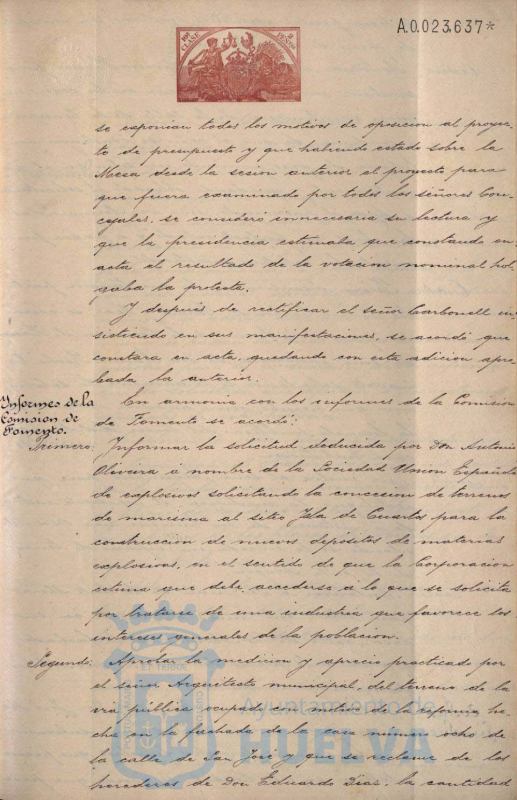 A.0.023.637*
10ª CLASE
2 PESETAS
se exponian todos los motivos de oposicion al proyec-
to de presupuesto y que habiendo estado sobre la
Mesa desde la sesion anterior el proyecto para
que fuera examinado por todos los señores Con-
cejales, se consideró innecesaria su lectura y
que la presidencia estimaba que constando en
acta el resultado de la votacion nominal hol-
gaba la protesta.
Y despues de rectificar el señor Carbonell in-
sistiendo en sus manifestaciones, se acordó que
constara en acta, quedando con esta adicion apro-
bada la anterior.
Informes de la
Comision de
Fomento.
En armonia con los informes de la Comision
de Fomento se acordó:
Primero: Informar la solicitud deducida por Don Antonio
Oliveira á nombre de la Sociedad Union Española
de explosivos solicitando la concesion de terrenos
de marisma al sitio Isla de Cuartos para la
construccion de nuevos depósitos de materias
explosivas, en el sentido de que la Corporacion
estima que debe accederse á lo que se solicita
por tratarse de una industria que favorece los
intereses generales de la poblacion.
Segundo: Aprobar la medicion y aprecio practicado por
el señor Arquitecto municipal, del terreno de la
via pública ocupado con motivo de la reforma he-
cha en la fachada de la casa número ocho de
la calle de San José y que se reclame de los
herederos de Don Eduardo Dias, la cantidad
Ayuntamiento de
HUELVA